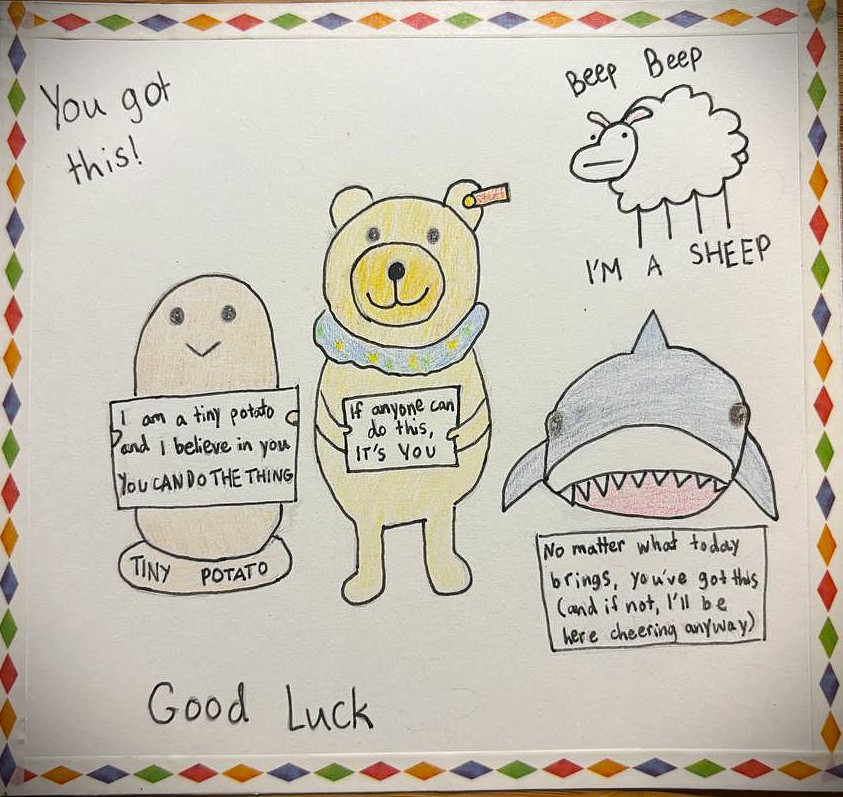 You got
this!
Beep Beep
I'M A SHEEP
I am a tiny potato
and I believe in you
YOU CAN DO THE THING
TINY POTATO
If anyone can
do this,
IT'S YOU
No matter what today
brings, you've got this
(and if not, I'll be
here cheering anyway)
Good Luck